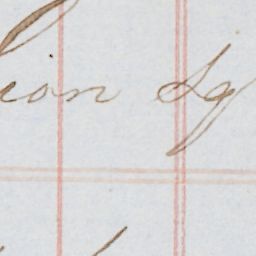 ion Sq